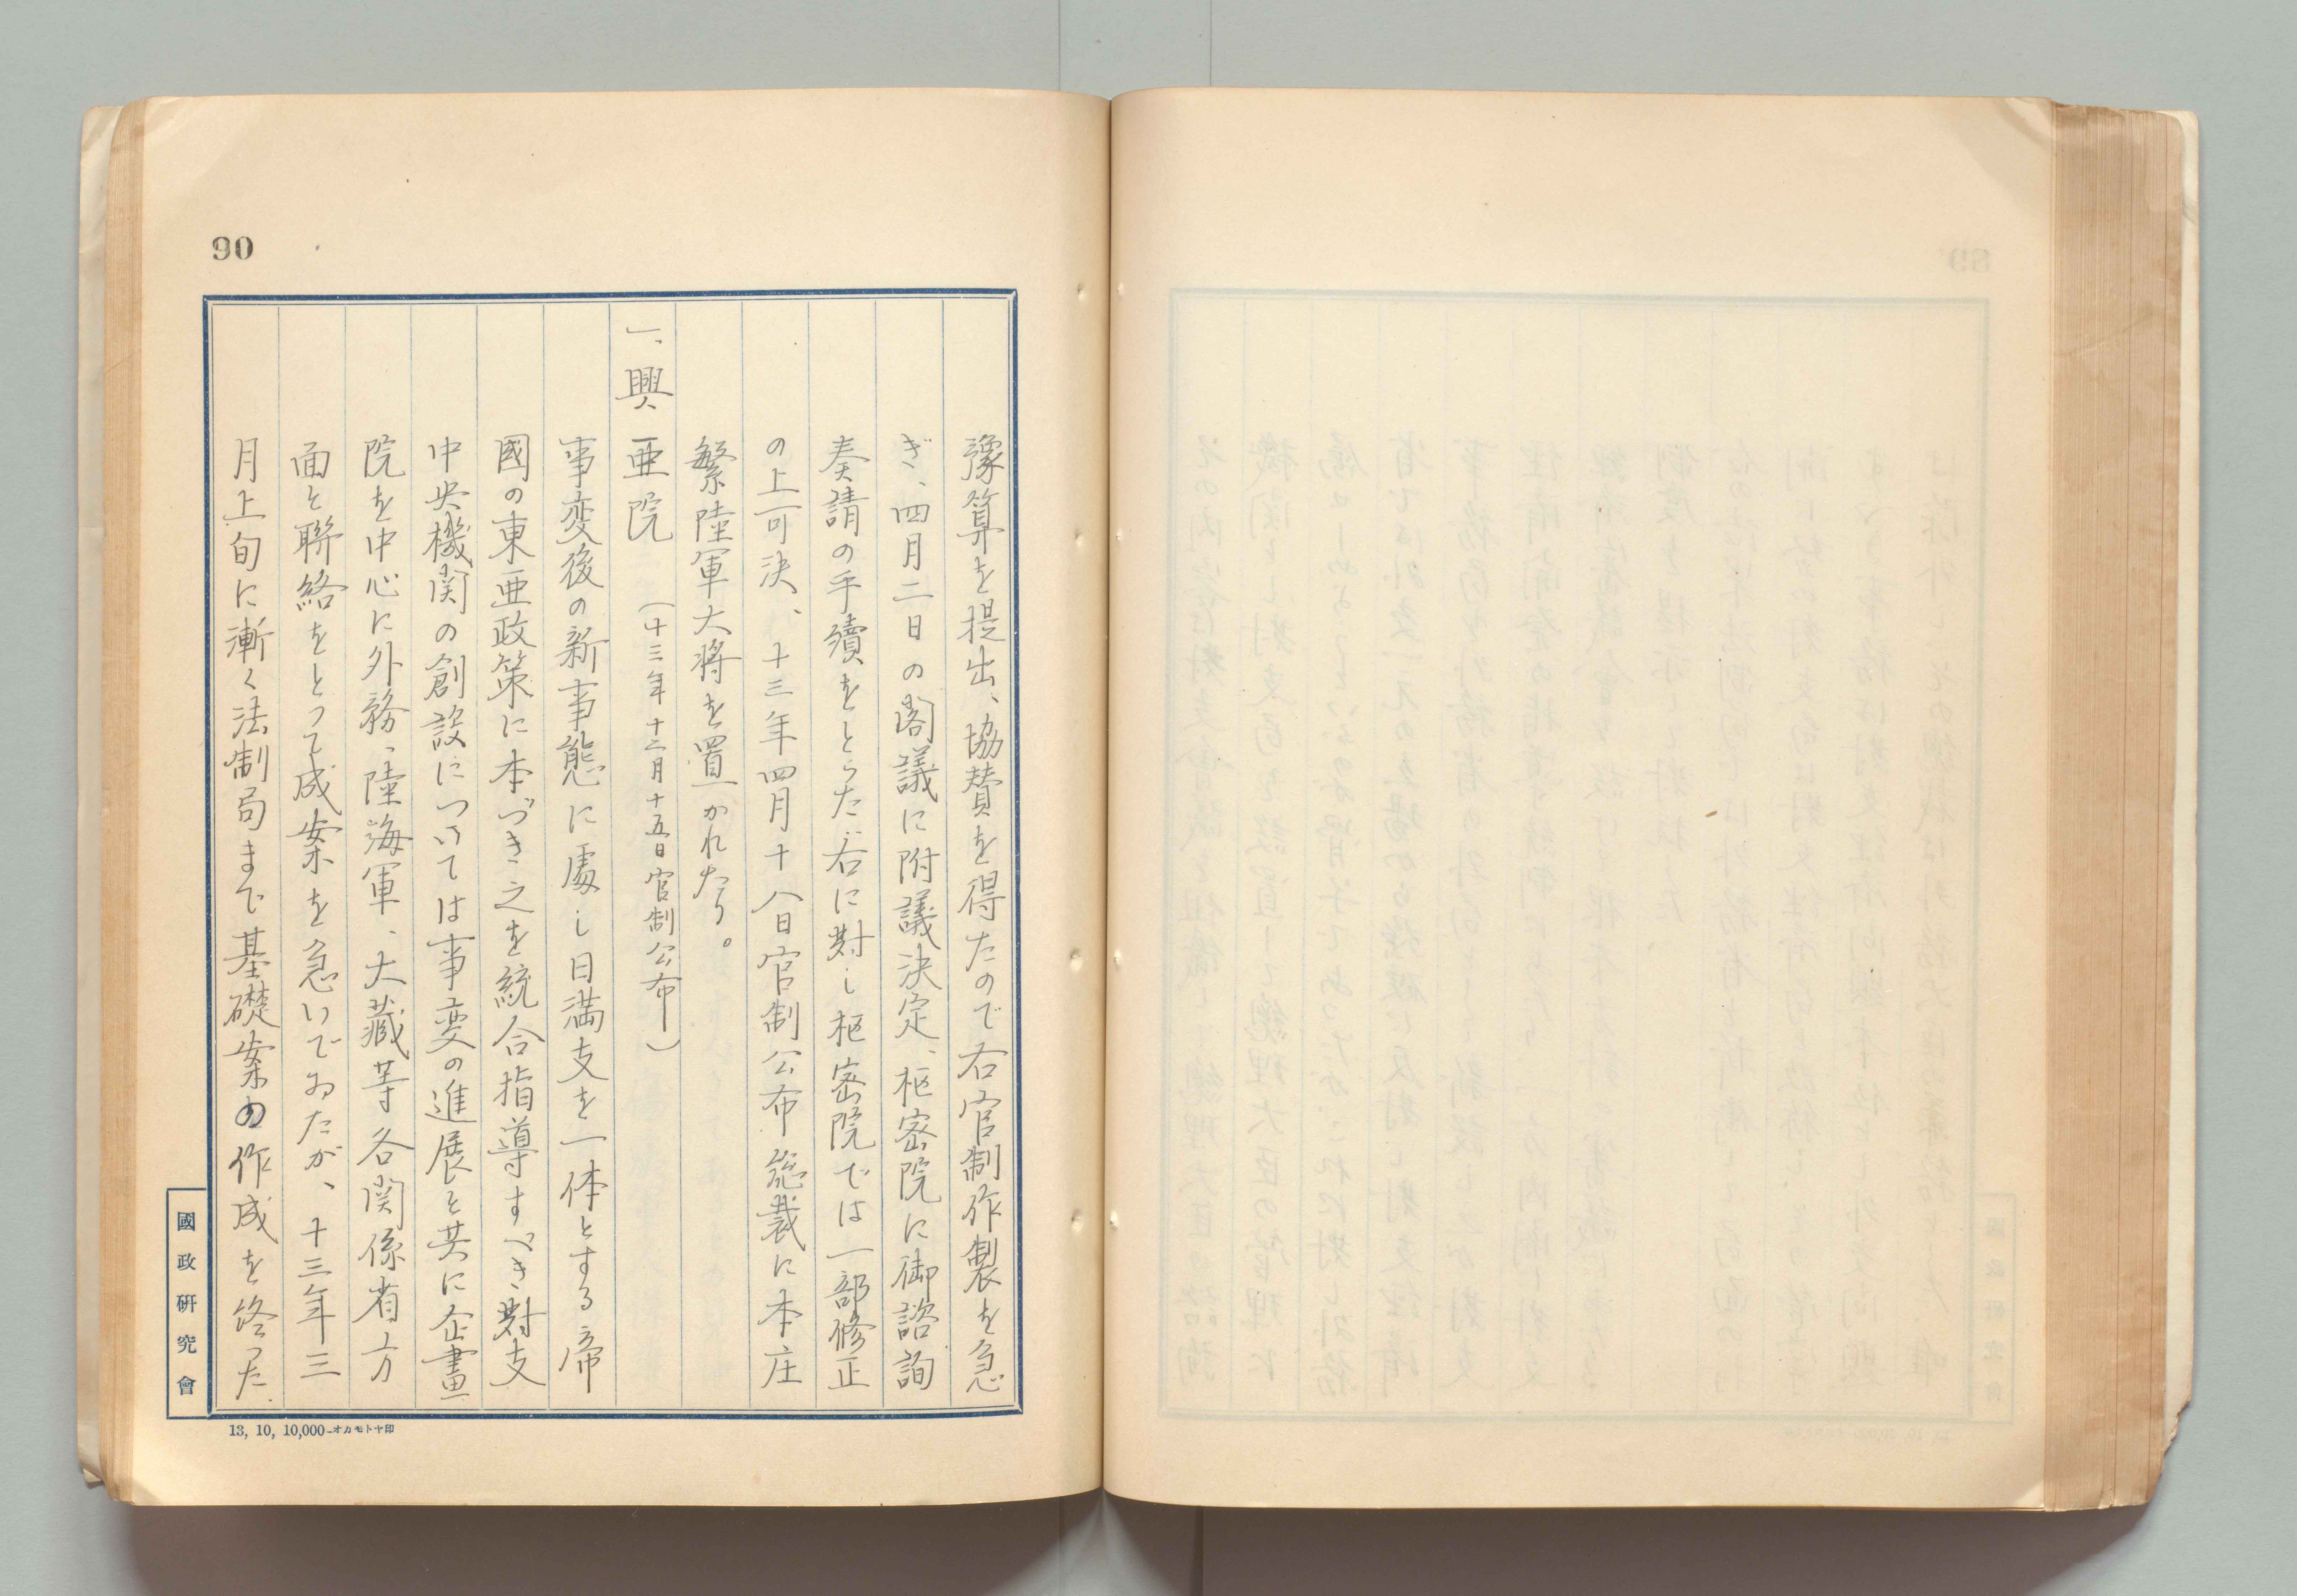 90
豫算を提出、協賛を得たので右官制作製を急
ぎ、四月二日の閣議に附議決定、枢密院に御諮詢
奏請の手續をとつた。右に對し枢密院では一部修正
の上可決、十三年四月十八日官制公布総裁に本庄
繁陸軍大将を置かれたり。
一、興亜院（十三年十二月十五日官制公布）
事変後の新事態に處し日満支を一体とする帝
國の東亜政策に本づき之を統合指導すべき對支
中央機関の創設については事変の進展と共に企畫
院を中心に外務、陸海軍、大藏等各関係省方
面と聯絡をとつて成案を急いでゐたが、十三年三
月上旬に漸く法制局まで基礎案の作成を終つた
國政研究會
13, 10, 10,000-オカモトヤ印